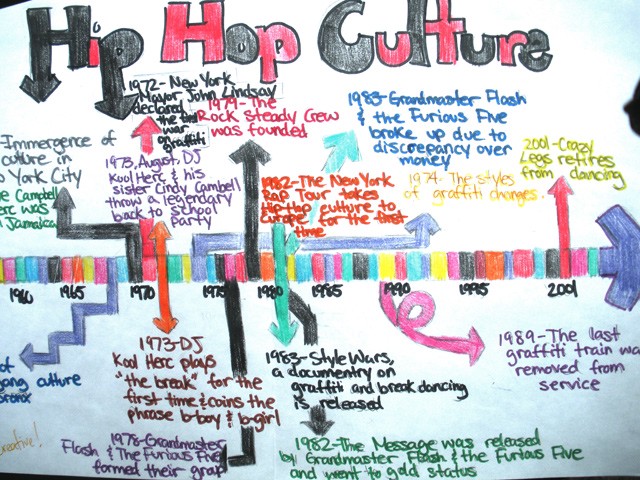 Hip Hop Culture
1972- New York
Mayor John Lindsay
declared
the first
war
on
graffiti
1979- The
Rock Steady Crew
was founded
1983- Grandmaster Flash
& the Furious Five
broke up due to
discrepancy over
money
2001- Crazy
Legs retires
from dancing
-Immergence of
culture in
York City
Campbell
erc was
Jamaica
1973, August, DJ
Kool Herc & his
sister Cindy Cambell
throw a legendary
back to school
party
1982- The New York
Rap Tour takes
Hip Hop culture to
Europe for the first
time
1974- The styles
of graffiti changes.
1960 1965 1970 1975 1980 1985 1990 1995 2001
of
gang culture
Bronx
creative!
1973- DJ
Kool Herc plays
"the break" for the
first time & coins the
phrase b-boy & b-girl
1978- Grandmaster
Flash & The Furious Five
formed their grap
1983- Style Wars,
a documentry on
graffiti and break dancing
is released
1982- The Message was released
by Grandmaster Flash & the Furious Five
and went to gold status
1989- The last
graffiti train wa
removed from
service